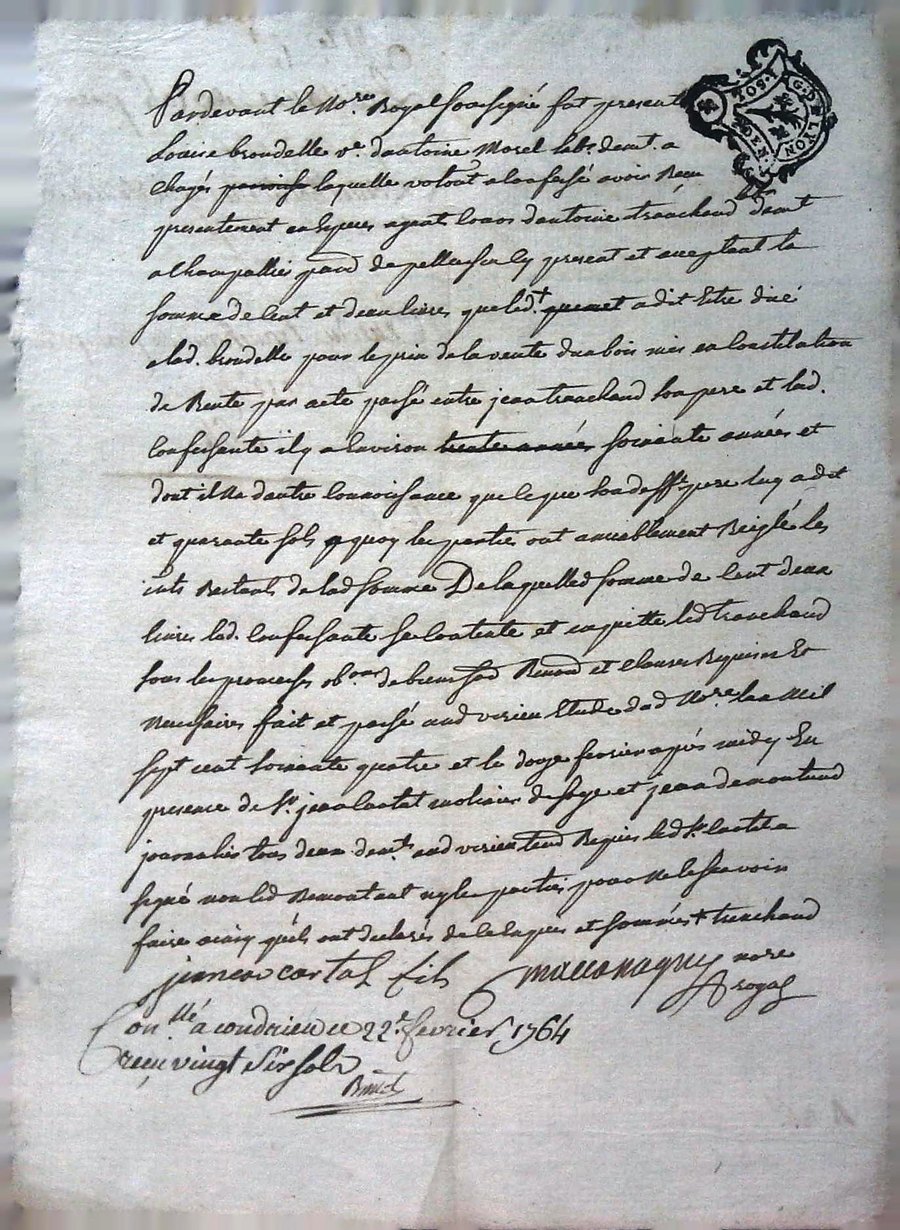 Pardevant le No.re Royal soussigné fut present
Louise brondelle v.e dantoine Morel hab. demt. a
Chagés paroisse laquelle volont a confessé avoir Reçu
presentement en especes agent cours dantoine tranchand demt
a Champallier par.d de pellussin cy present et acceptant la
somme de Cent et deux livres que led.t + quemet a dit Estre düe
a lad. brondelle pour le prix de la vente dun bois mis en Constitution
de Rente par acte passé entre jean tranchand son pere et lad.
Confessante il y a Environ trente années soixante années et
dont il Na dautre connoissance que ce que son deff.t pere luy a dit
et quarante sols a quoy les parties ont amiablement Reiglé les
ints Restants de lad somme De laquelle d somme de Cent deux
livres lad. Confessante se Contente et en quitte led tranchand
sous les promesses ob.ons de biens sod Renond et clauses Requises Et
Necessaires fait et passé aud verien Etude dud No.re lan Mil
sept cent soixante quatre et le doze fevrier après midy En
presence de S.r jean Cartal de foye et jean demontend
journalier tous deux demts aud verien Requis led S.r Cartal a
signé non led ny les parties pour Ne le sçavoir
faire ainsy quils ont declarés de ce Enquis et sommés + tranchand
jean Cartal fils nore
royal
Con.llé a condrieu ce 22.e fevrier 1764
reçu vingt six sols
G. DE LYON